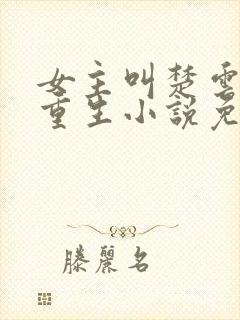 女主叫楚雲
重生小說免
滕麗名